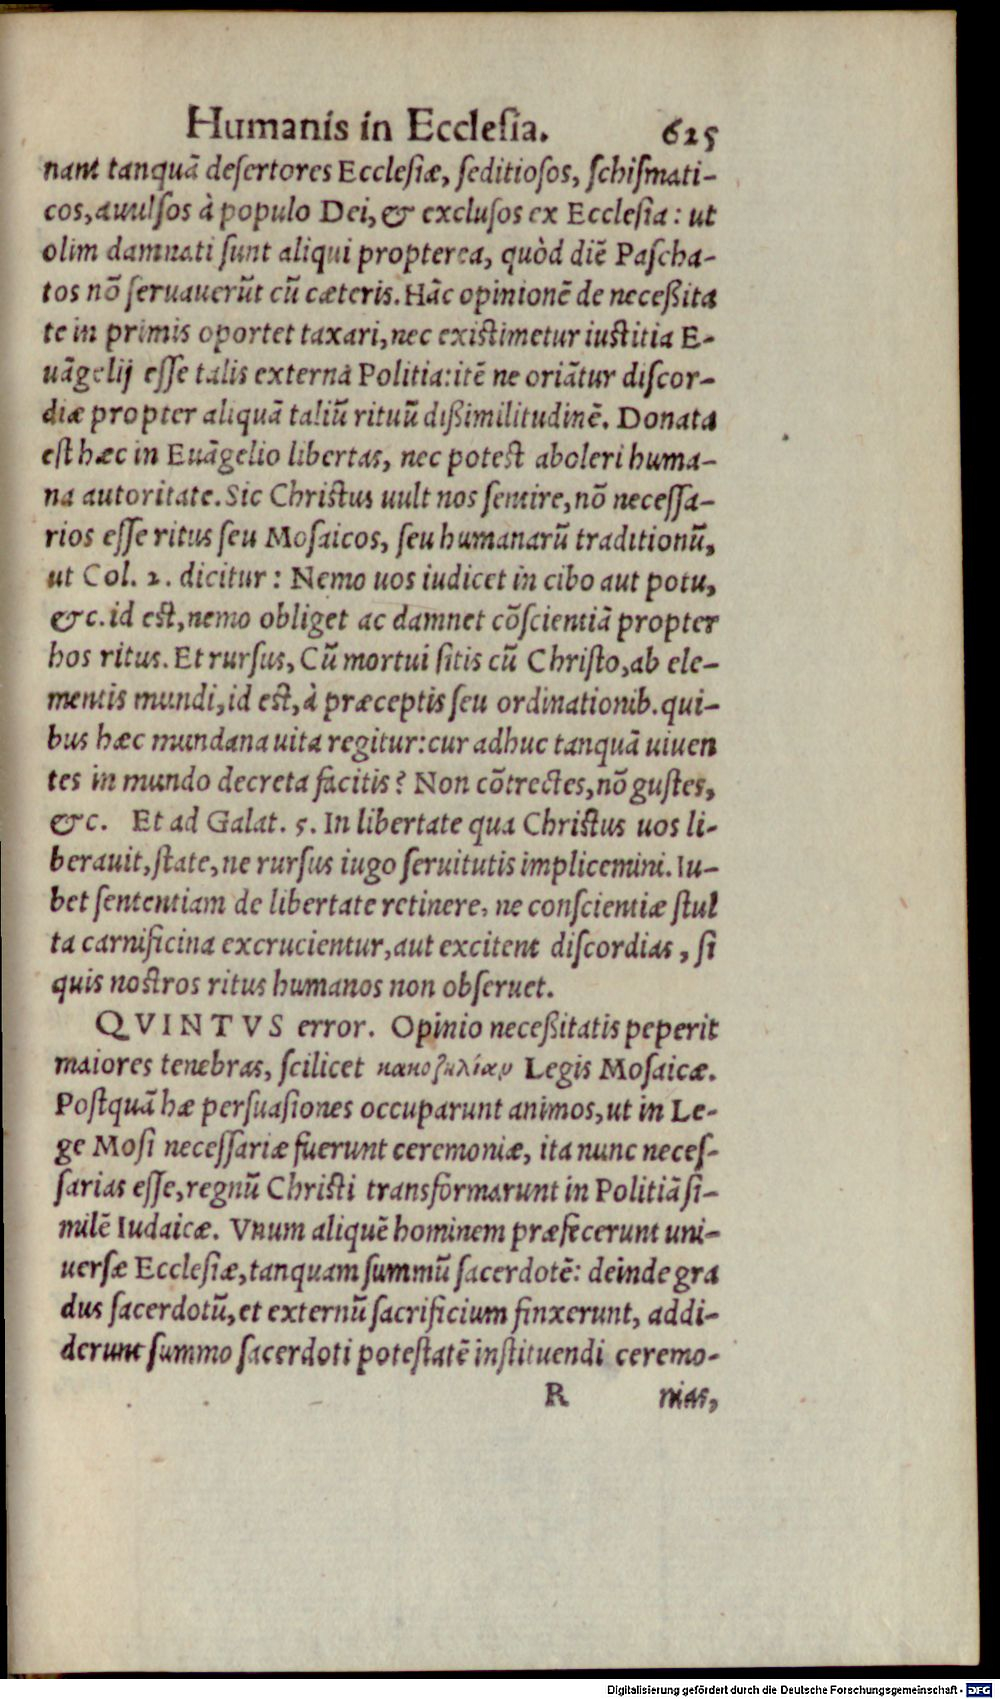 Humanis in Ecclesia. 625
nant tanquā desertores Ecclesiæ, seditiosos, schismati-
cos, auulsos à populo Dei, & exclusos ex Ecclesia: ut
olim damnati sunt aliqui propterea, quòd diē Pascha-
tos nō seruauerūt cū cæteris. Hāc opinionē de neceßita
te in primis oportet taxari, nec existimetur iustitia E-
uāgelij esse talis externa Politia: itē ne oriātur discor-
diæ propter aliquā taliū rituū dißimilitudinē. Donata
est hæc in Euāgelio libertas, nec potest aboleri huma-
na autoritate. Sic Christus uult nos sentire, nō necessa-
rios esse ritus seu Mosaicos, seu humanarū traditionū,
ut Col. 2. dicitur: Nemo uos iudicet in cibo aut potu,
&c. id est, nemo obliget ac damnet cōscientiā propter
hos ritus. Et rursus, Cū mortui sitis cū Christo, ab ele-
mentis mundi, id est, à præceptis seu ordinationib. qui-
bus hæc mundana uita regitur: cur adhuc tanquā uiuen
tes in mundo decreta facitis? Non cōtrectes, nō gustes,
&c. Et ad Galat. 5. In libertate qua Christus uos li-
berauit, state, ne rursus iugo seruitutis implicemini. Iu-
bet sententiam de libertate retinere, ne conscientiæ stul
ta carnificina excrucientur, aut excitent discordias, si
quis nostros ritus humanos non obseruet.
QVINTVS error. Opinio neceßitatis peperit
maiores tenebras, scilicet κακοζηλίαν Legis Mosaicæ.
Postquā hæ persuasiones occuparunt animos, ut in Le-
ge Mosi necessariæ fuerunt ceremoniæ, ita nunc neces-
sarias esse, regnū Christi transformarunt in Politiā si-
milē Iudaicæ. Vnum aliquē hominem præfecerunt uni-
uersæ Ecclesiæ, tanquam summū sacerdotē: deinde gra
dus sacerdotū, et externū sacrificium finxerunt, addi-
derunt summo sacerdoti potestatē instituendi ceremo-
R nias,
Digitalisierung gefördert durch die Deutsche Forschungsgemeinschaft - DFG